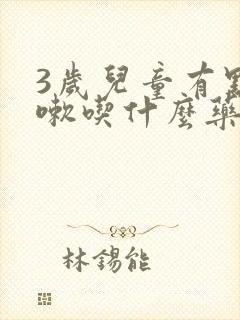 3歲兒童有點
嗽喫什麼藥
林錫能